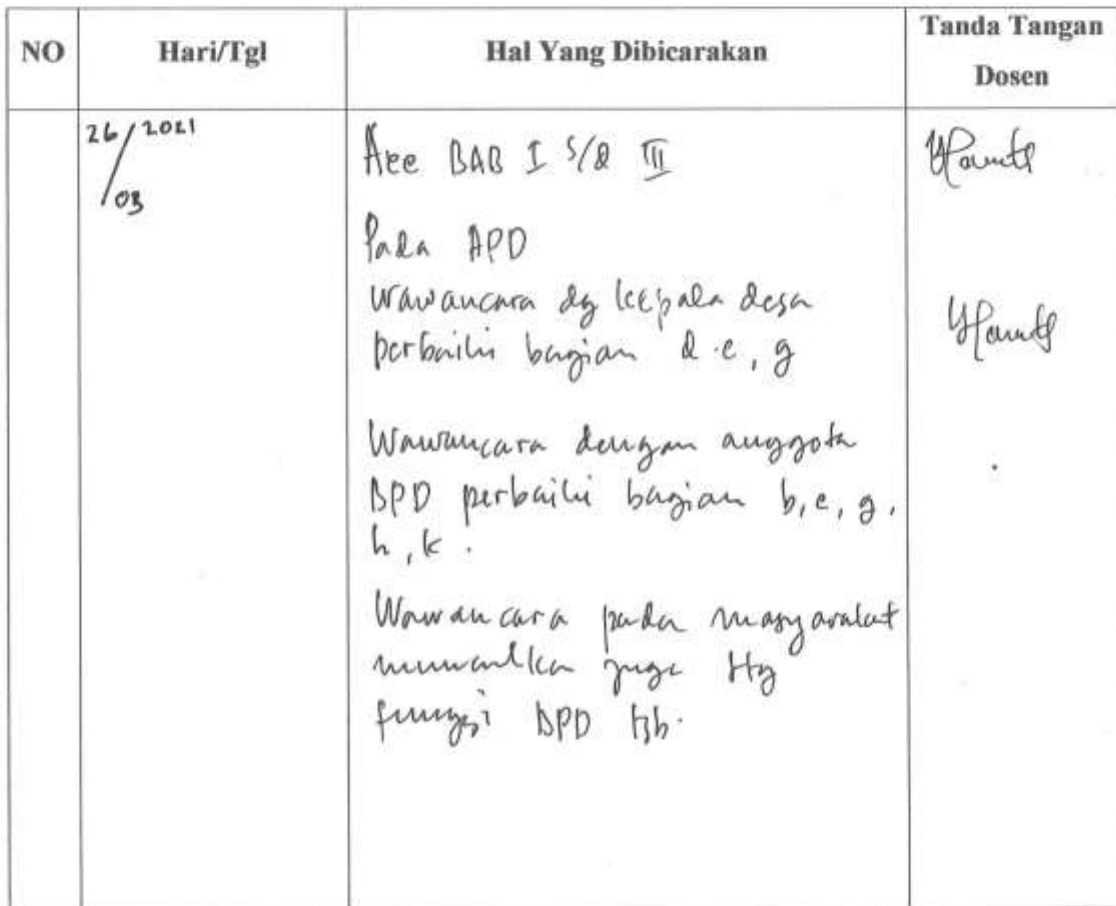 NO
Hari/Tgl
Hal Yang Dibicarakan
Tanda Tangan
Dosen
26/03 2021
Acc BAB I s/d III
Pada APD
wawancara dg kepala desa
perbaiki bagian d.e, g
Wawancara dengan anggota
BPD perbaiki bagian b, e, g,
h, k.
Wawancara pada masyarakat
munculkan juga ttg
fungsi BPD tsb.